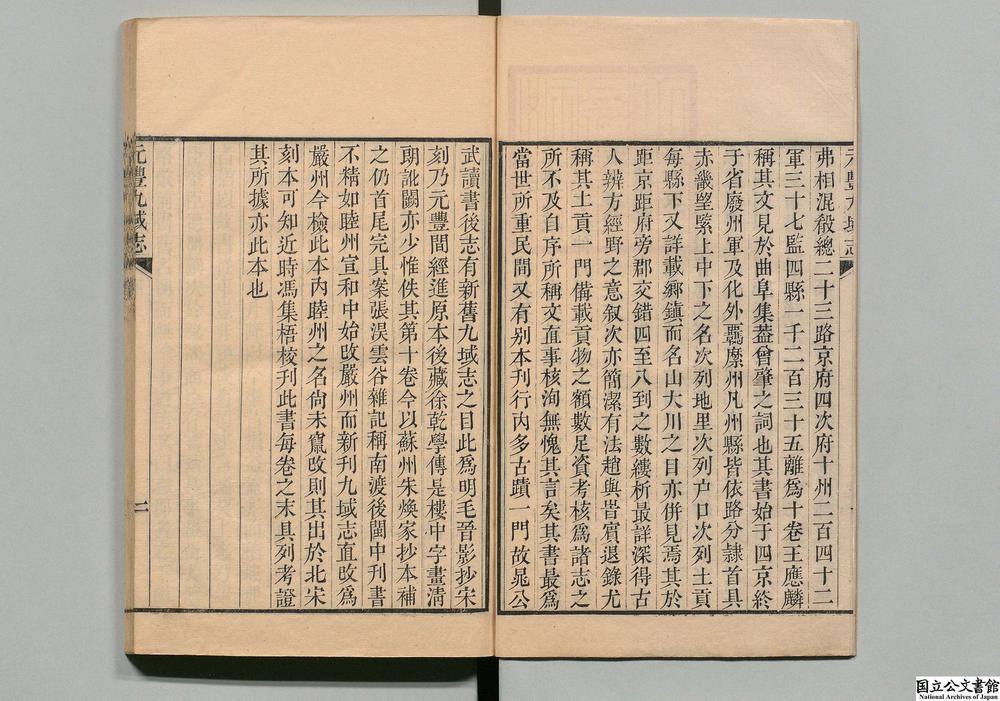 弗相混殽總二十三路京府四次府十州二百四十二
軍三十七監四縣一千二百三十五離爲十卷王應麟
稱其文見於曲阜集蓋曾肇之詞也其書始于四京終
于省廢州軍及化外羈縻州凡州縣皆依路分隸首具
赤畿望緊上中下之名次列地里次列户口次列土貢
每縣下又詳載鄉鎮而名山大川之目亦併見焉其於
距京距府旁郡交錯四至八到之數縷析最詳深得古
人辨方經野之意叙次亦簡潔有法趙與旹賓退錄尤
稱其土貢一門備載貢物之額數足資考核爲諸志之
所不及自序所稱文直事核洵無愧其言矣其書最爲
當世所重民間又有别本刊行内多古蹟一門故晁公
武讀書後志有新舊九域志之目此爲明毛晉影抄宋
刻乃元豐間經進原本後藏徐乾學傳是樓中字畫淸
朗訛闕亦少惟佚其第十卷今以蘇州朱煥家抄本補
之仍首尾完具案張淏雲谷雜記稱南渡後閩中刊書
不精如睦州宣和中始改嚴州而新刊九域志直改爲
嚴州今檢此本内睦州之名尚未竄改則其出於北宋
刻本可知近時馮集梧校刊此書每卷之末具列考證
其所據亦此本也
元豐九域志
二
国立公文書館
National Archives of Japan